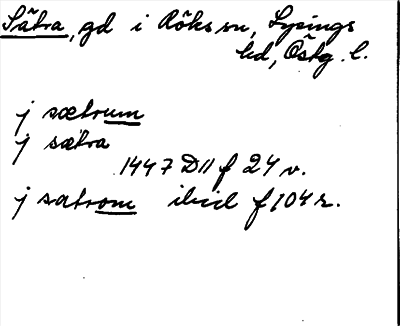 Sätra, gd i Röks sn, Lysings
hd, Östg. l.
j sætrum
j sætra
1447 D 11 f 24 v.
j satrom ibid f 104 r.